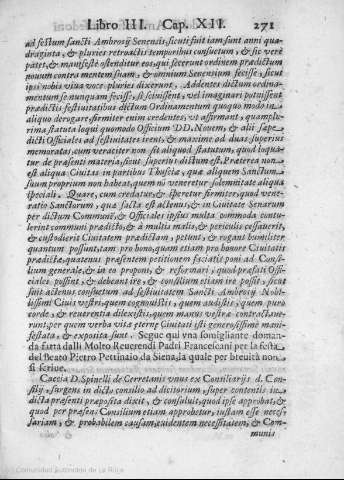 Libro III. Cap. XII. 271
ad festum sancti Ambrosij Senensis, sicuti fuit iam sunt anni qua-
draginta, & pluries retroactis temporibus consuetum, & sic vere
patet, & manifeste ostenditur eos, qui fecerunt ordinem prædictum
nouum contra mentem suam, & omnium Senensium fecisse, sicut
nobis viua voce pluries dixerunt. Addentes dictum ordina-
mentum se nunquam fecisse, si sciuissent, vel imaginari potuissent
prædictis festiuitatibus dictum Ordinamentum quoquo modo in
aliquo derogare, & firmiter enim credentes, vt affirmant, quamplu-
rima statuta loqui quomodo Officium DD. Nouem, & alij sæpe
dicti Officiales ad festiuitates ireni, & maxime ad duas superius
memoratas, cum veraciter non sit aliquod statutum, quod loqua-
tur de præsenti materia, sicut superius dictum est. Præterea non
est aliqua Ciuitas in partibus Thusciæ, quæ aliquem Sanctum
suum proprium non habeat, quem nō veneretur solemnitate aliqua
speciali. Quare, cum credatur, & speretur firmiter, quod vene-
ratio Sanctorum, quæ facta est actenus, & in Ciuitate Senarum
per dictum Commune, & Officiales ipsius multa commoda contu-
lerint communi prædicto, & à multis malis, & periculis cessauerit,
& custodierit Ciuitatem prædictam, petunt, & rogant humiliter
quantum possunt, tam pro bono, quam etiam pro honore Ciuitatis
prædictæ, quatenus præsentem petitionem faciatis poni ad Consi-
lium generale, & in eo proponi, & reformari, quod præfati Offi-
ciales possint, & debeant ire, & consilium etiam ire possit, sicut
fuit actenus consuetum ad festiuitatem Sancti Ambrosij Nobi-
lissimi Ciuis vestri, quem cognouistis, quem audistis, quem puro
corde, & reuerentia dilexistis, quem manus vestræ contractaue-
runt, per quem verba vitæ eternæ Ciuitati isti generosissime mani-
festata, & exposita sunt. Segue qui vna somigliante doman-
da fatta dalli Molto Reuerendi Padri Francescani per la festa
del Beato Pietro Pettinaio da Siena, la quale per breuità non
si scriue.
Caccia D. Spinelli de Cerretanis vnus ex Consiliarijs d. Con-
silij, surgens in dicto consilio ad dicitorium, super contentis in
dicta præsenti præposita dixit, & consuluit, quod ipse approbat, &
quod per præsens Consilium etiam approbetur, iustam esse neces-
sariam, & probabilem causam, euidentem necessitatem, & Com-
munis
Comunidad Autónoma de La Rioja